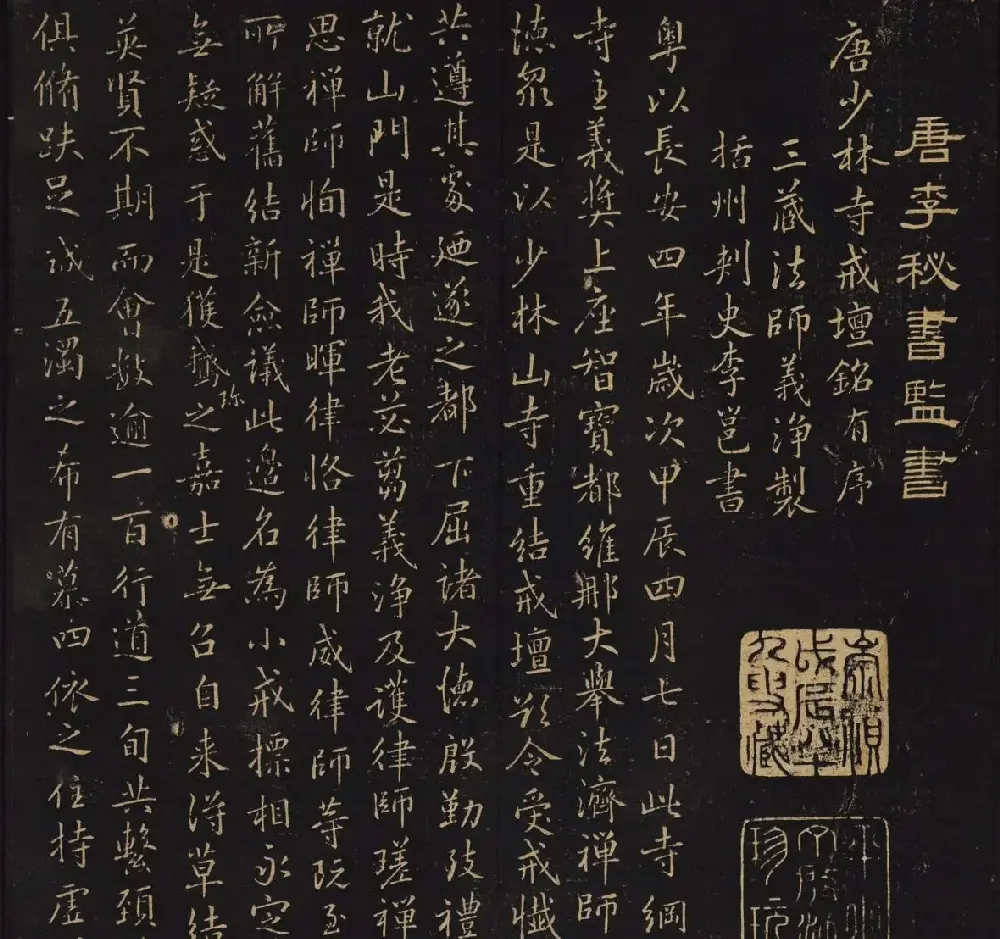 唐李秘書監書
唐少林寺戒壇銘有序
三藏法師義淨製
括州刺史李邕書
粵以長安四年歲次甲辰四月七日此寺綱
寺主義奬上座智寶都維那大舉法濟禪師
德眾是以少林山寺重結戒壇欲令受戒懺
共遵其處廼遂之都下屈諸大德殷勤致禮
就山門是時我老苾芻義淨及護律師瑳禪
思禪師恂禪師暉律恪律師威律師等既至
所解舊結新僉議此邊名為小戒標相永定
無疑惑于是獲鵝珍之嘉士無召自来得草結
英賢不期而會數逾一百行道三旬共繫頚
俱脩趺足誠五濁之希有慕四依之住持虛
戊辰
藏
珍玩